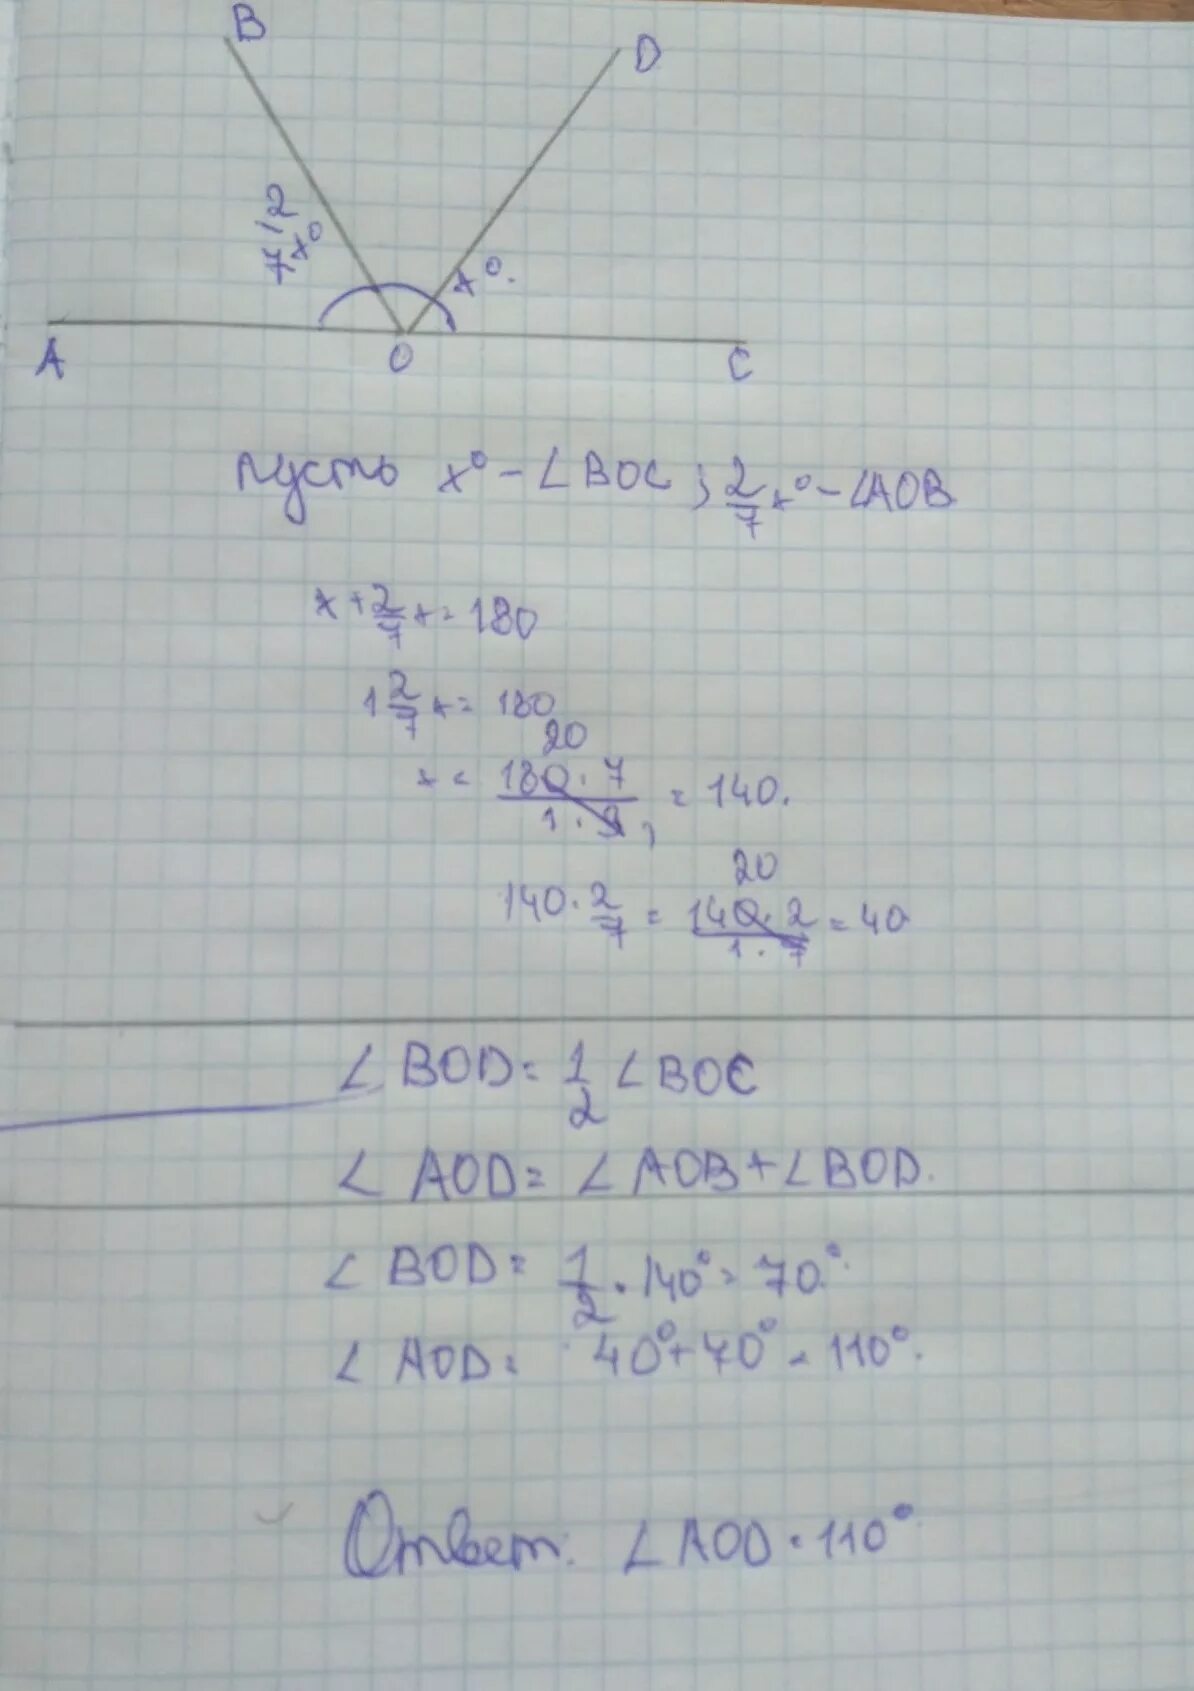 B
D
2/7 x°
x°.
A O C
пусть x° - ∠BOC ; 2/7 x° - ∠AOB
x + 2/7 x = 180
1 2/7 x = 180
20
x = 180 · 7 / 1 · 9 , = 140.
20
140 · 2/7 = 140 · 2 / 1 · 7 = 40
∠ BOD = 1/2 ∠ BOC
∠ AOD = ∠ AOB + ∠ BOD.
∠ BOD = 1/2 · 140° = 70°.
∠ AOD = 40° + 70° = 110°.
Ответ: ∠ AOD = 110°